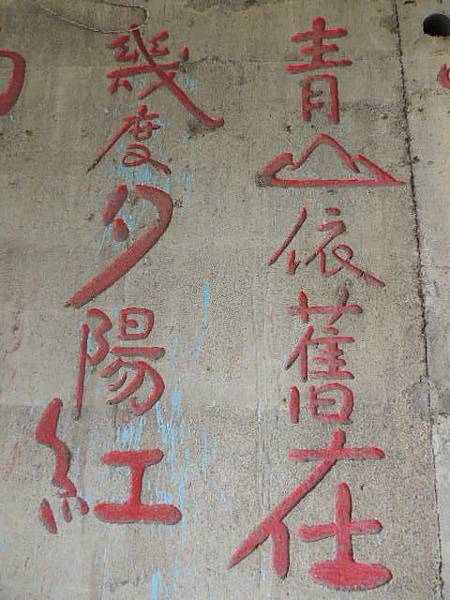 青山依舊在
幾度夕陽紅